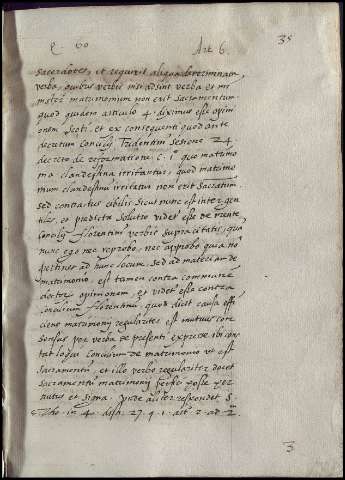 q 60 Art 6. 35
sacerdotes, et requirit aliqua determinata
verba, quibus verbis nisi adsint verba et mi
nister matrimonium non erit Sacramentum
quod quidem articulo 4. diximus esse opini
onem Scoti. et ex consequenti quod ante
decretum Concilij Tridentini sesione 24
decreto de reformatione c. 1 quo matrimo
nia clandestina irritantur, quod matrimo
nium clandestinum irritatus non erit Sacratum.
sed contractus cibilis sicut nunc est inter gen
tiles, et predicta solutio videt esse de mente
Concilij florentini verbis supra citatis, qua
nunc ego nec reprobo, nec approbo quia nõ
pertinet ad hunc locum. sed ad materiam de
matrimonio, est tamen contra communem
doctor opinionem, et videt esse contra
concilium florentinum, quod dicit causa effi
ciens matrimonij regulariter est mutuus con
sensus per verba de presenti expresse ibi cons
tat loqui Concilium de matrimonio ut est
sacramentum, et illo verbo regulariter docet
sacramentum matrimonij perfici posse per
nutus et signa. Unde aliter respondet S.
Tho. in 4. dist. 27. q. 1. art. 2. ad 2.
3